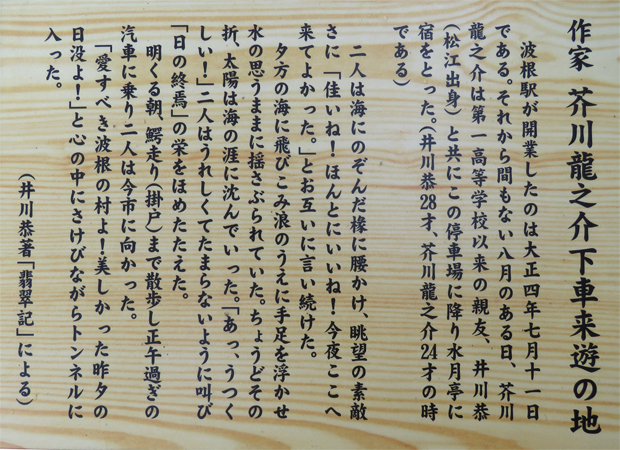 作家 芥川龍之介下車来遊の地
波根駅が開業したのは大正四年七月十一日
である。それから間もない八月のある日、芥川
龍之介は第一高等学校以来の親友、井川恭
(松江出身)と共にこの停車場に降り水月亭に
宿をとった。(井川恭28才、芥川龍之介24才の時
である)
二人は海にのぞんだ椽に腰かけ、眺望の素敵
さに「佳いね!ほんとにいいね!今夜ここへ
来てよかった。」とお互いに言い続けた。
夕方の海に飛びこみ浪のうえに手足を浮かせ
水の思うままに揺さぶられていた。ちょうどその
折、太陽は海の涯に沈んでいった。「あっ、うつく
しい!」二人はうれしくてたまらないように叫び
「日の終焉」の栄をほめたたえた。
明くる朝、鰐走り(掛戸)まで散歩し正午過ぎの
汽車に乗り二人は今市に向かった。
「愛すべき波根の村よ!美しかった昨夕の
日没よ!」と心の中にさけびながらトンネルに
入った。
(井川恭著「翡翠記」による)